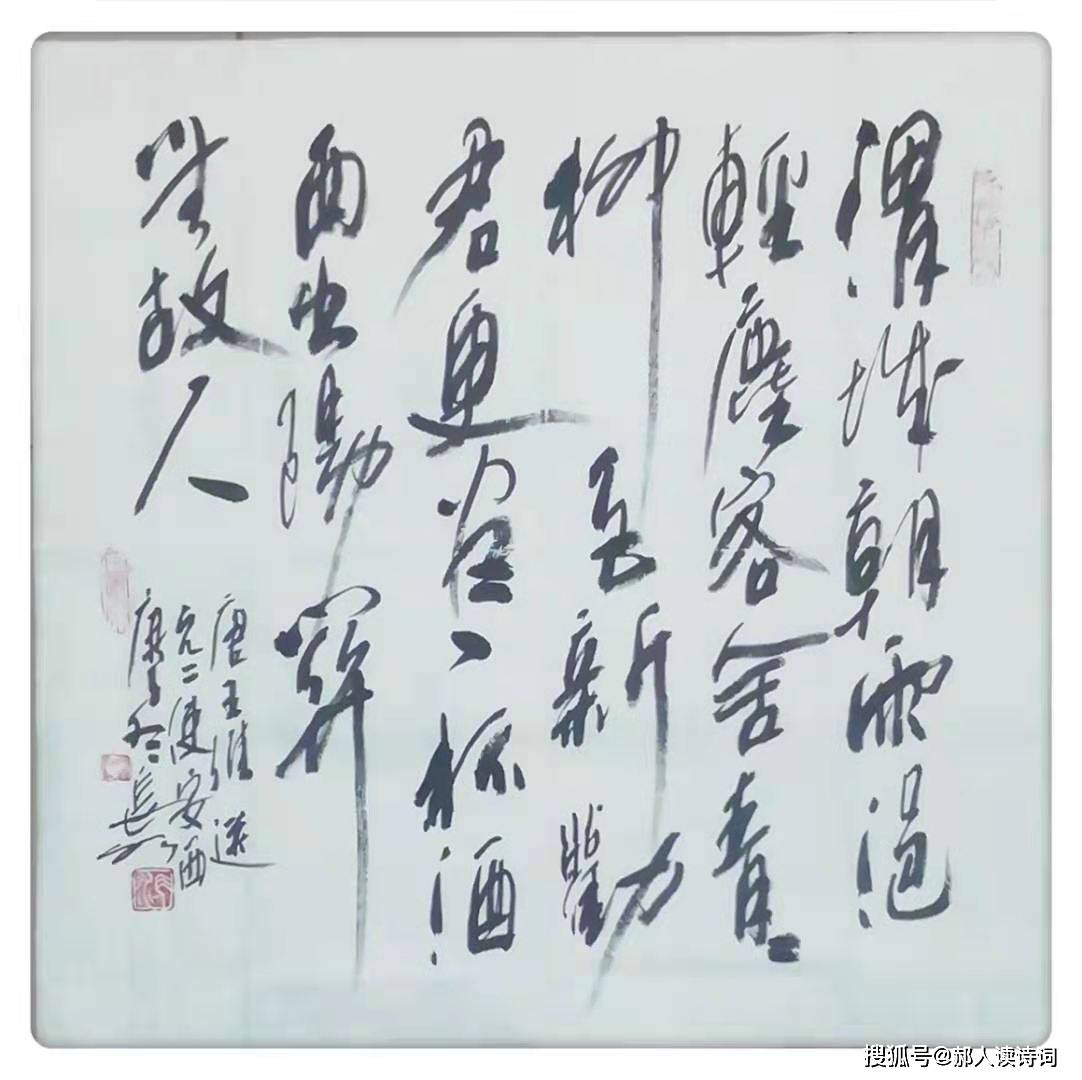 渭城朝雨浥
輕塵客舍青〻
柳色新勸
君更盡一杯酒
西出陽關
無故人
唐王維送
元二使安西
庚子冬
搜狐号@郝人读诗词